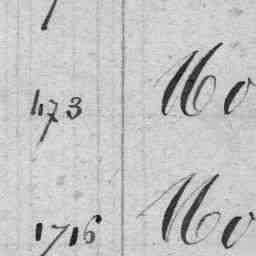 473 Mo
1716 Mo